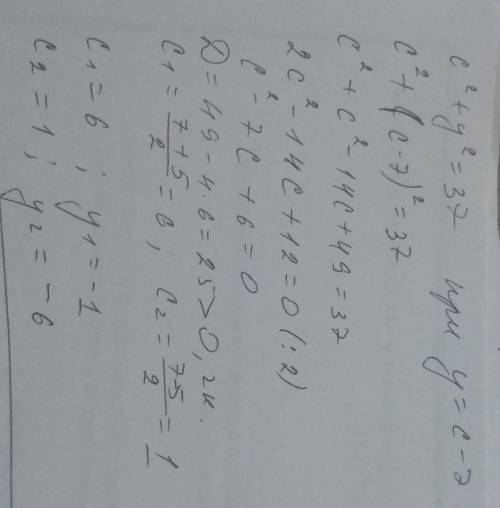 c² + y² = 37 при y = c - 7
c² + (c-7)² = 37
c² + c² - 14c + 49 = 37
2c² - 14c + 12 = 0 (:2)
c² - 7c + 6 = 0
D = 49 - 4·6 = 25 > 0, 2к.
c1 = (7+5)/2 = 6; c2 = (7-5)/2 = 1
c1 = 6; y1 = -1
c2 = 1; y2 = -6